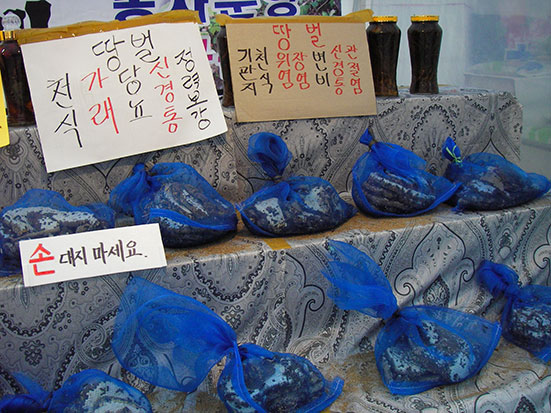 땅벌
천식
가래
당뇨
신경통
정력보강
땅벌
기관지
천식
위염
장염
변비
신경통
관절염
손 대지 마세요.